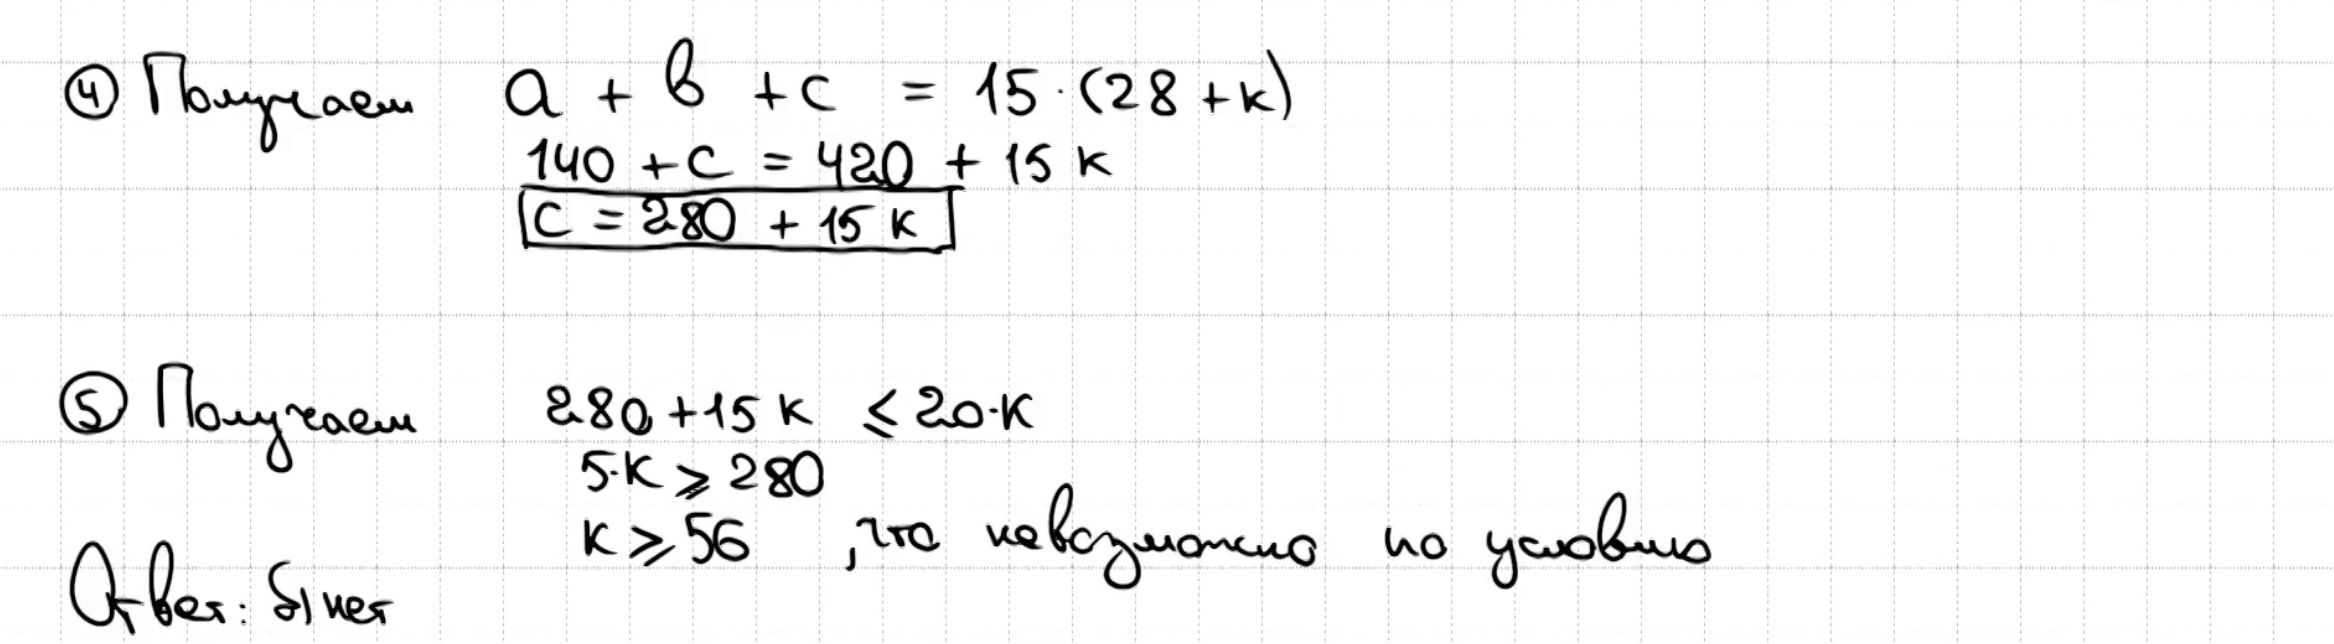 ④ Получаем a + b + c = 15·(28 + k)
140 + c = 420 + 15 k
c = 280 + 15 k
⑤ Получаем 280 + 15 k ⩽ 20·k
5·k ⩾ 280
k ⩾ 56 , что невозможно по условию
Ответ: б) нет